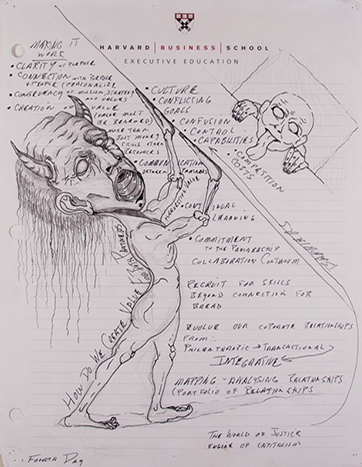 HARVARD | BUSINESS | SCHOOL
EXECUTIVE EDUCATION
MAKING IT
WORK
• CLARITY OF PURPOSE
• CONNECTION WITH PURPOSE
+ PEOPLE (PERSONALIZE
• CONGRUENCY OF MISSION, STRATEGY
AND VALUES
• CREATION OF VALUE
(CAUSE MUST
BE REWARD)
MORE THAN
JUST MONEY
SKILLS OTHER
RESOURCES
• COMMUNICATION
BETWEEN PARTNERS
• CULTURE
• CONFLICTING
GOALS
• CONFUSION
• CONTROL
• CAPABILITIES
• COMPETITION
• COSTS
• CONTINUAL
LEARNING
• COMMITMENT
TO THE PARTNERSHIP
COLLABORATION CONTINUUM
RECRUIT FOR SKILLS
BEYOND CONNECTION FOR
BOARD
EVOLVE OUR CORPORATE RELATIONSHIPS
FROM:
PHILANTHROPIC → TRANSACTIONAL
INTEGRATIVE
MAPPING - ANALYSING RELATIONSHIPS
(PORTFOLIO OF RELATIONSHIPS
THE WORLD OF JUSTICE
ENGINE OF CAPITALISM
HOW DO WE CREATE VALUE FOR OUR PARTNERS
... FOURTH DAY